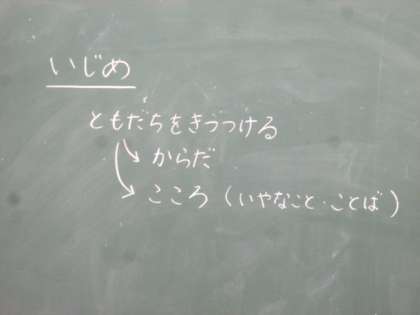 いじめ
ともだちをきづつける
からだ
こころ(いやなこと・ことば)